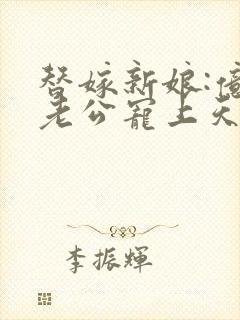 替嫁新娘:
老公寵上天
李振輝